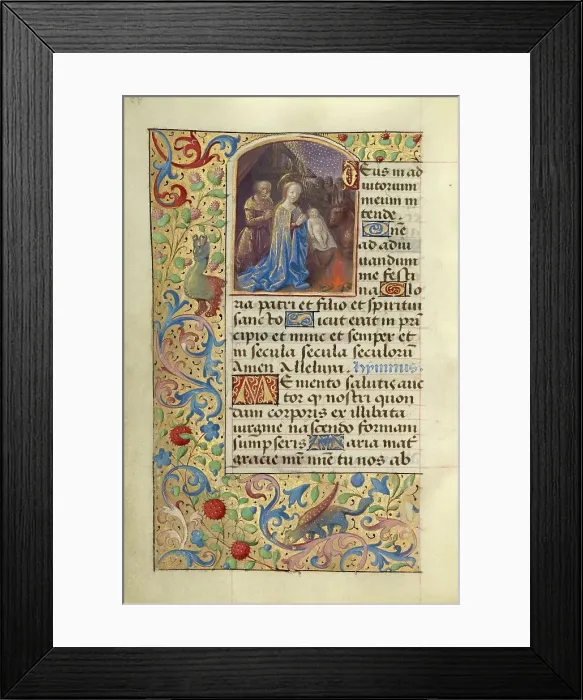 Eus in ad
iutorium
meum in
tende.
One
ad adiu
uandum
me festi
na Glo
ria patri et filio et spiritui
sancto Sicut erat in prin
cipio et nunc et semper et
in secula seculorum
Amen Alleluia. hymnus.
Memento salutis auc
tor qꝫ nostri quon
dam corporis ex illibata
uirgine nascendo formam
sumpseris Maria mat̃
gracie mr̃e mĩe tu nos ab